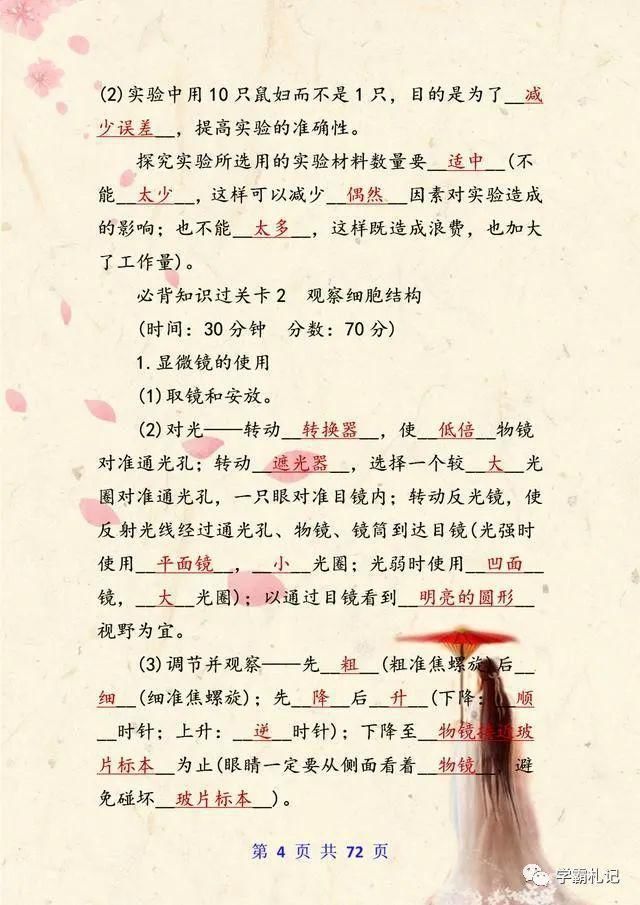 (2)实验中用10只鼠妇而不是1只，目的是为了__减
少误差__，提高实验的准确性。
探究实验所选用的实验材料数量要__适中__(不
能__太少__，这样可以减少__偶然__因素对实验造成
的影响；也不能__太多__，这样既造成浪费，也加大
了工作量)。
必背知识过关卡2 观察细胞结构
(时间：30分钟 分数：70分)
1.显微镜的使用
(1)取镜和安放。
(2)对光——转动__转换器__，使__低倍__物镜
对准通光孔；转动__遮光器__，选择一个较__大__光
圈对准通光孔，一只眼对准目镜内；转动反光镜，使
反射光线经过通光孔、物镜、镜筒到达目镜(光强时
使用__平面镜__，__小__光圈；光弱时使用__凹面__
镜，__大__光圈)；以通过目镜看到__明亮的圆形__
视野为宜。
(3)调节并观察——先__粗__(粗准焦螺旋)后__
细__(细准焦螺旋)；先__降__后__升__(下降：__顺
__时针；上升：__逆__时针)；下降至__物镜接近玻
片标本__为止(眼睛一定要从侧面看着__物镜__，避
免碰坏__玻片标本__)。
第 4 页 共 72 页
学霸札记